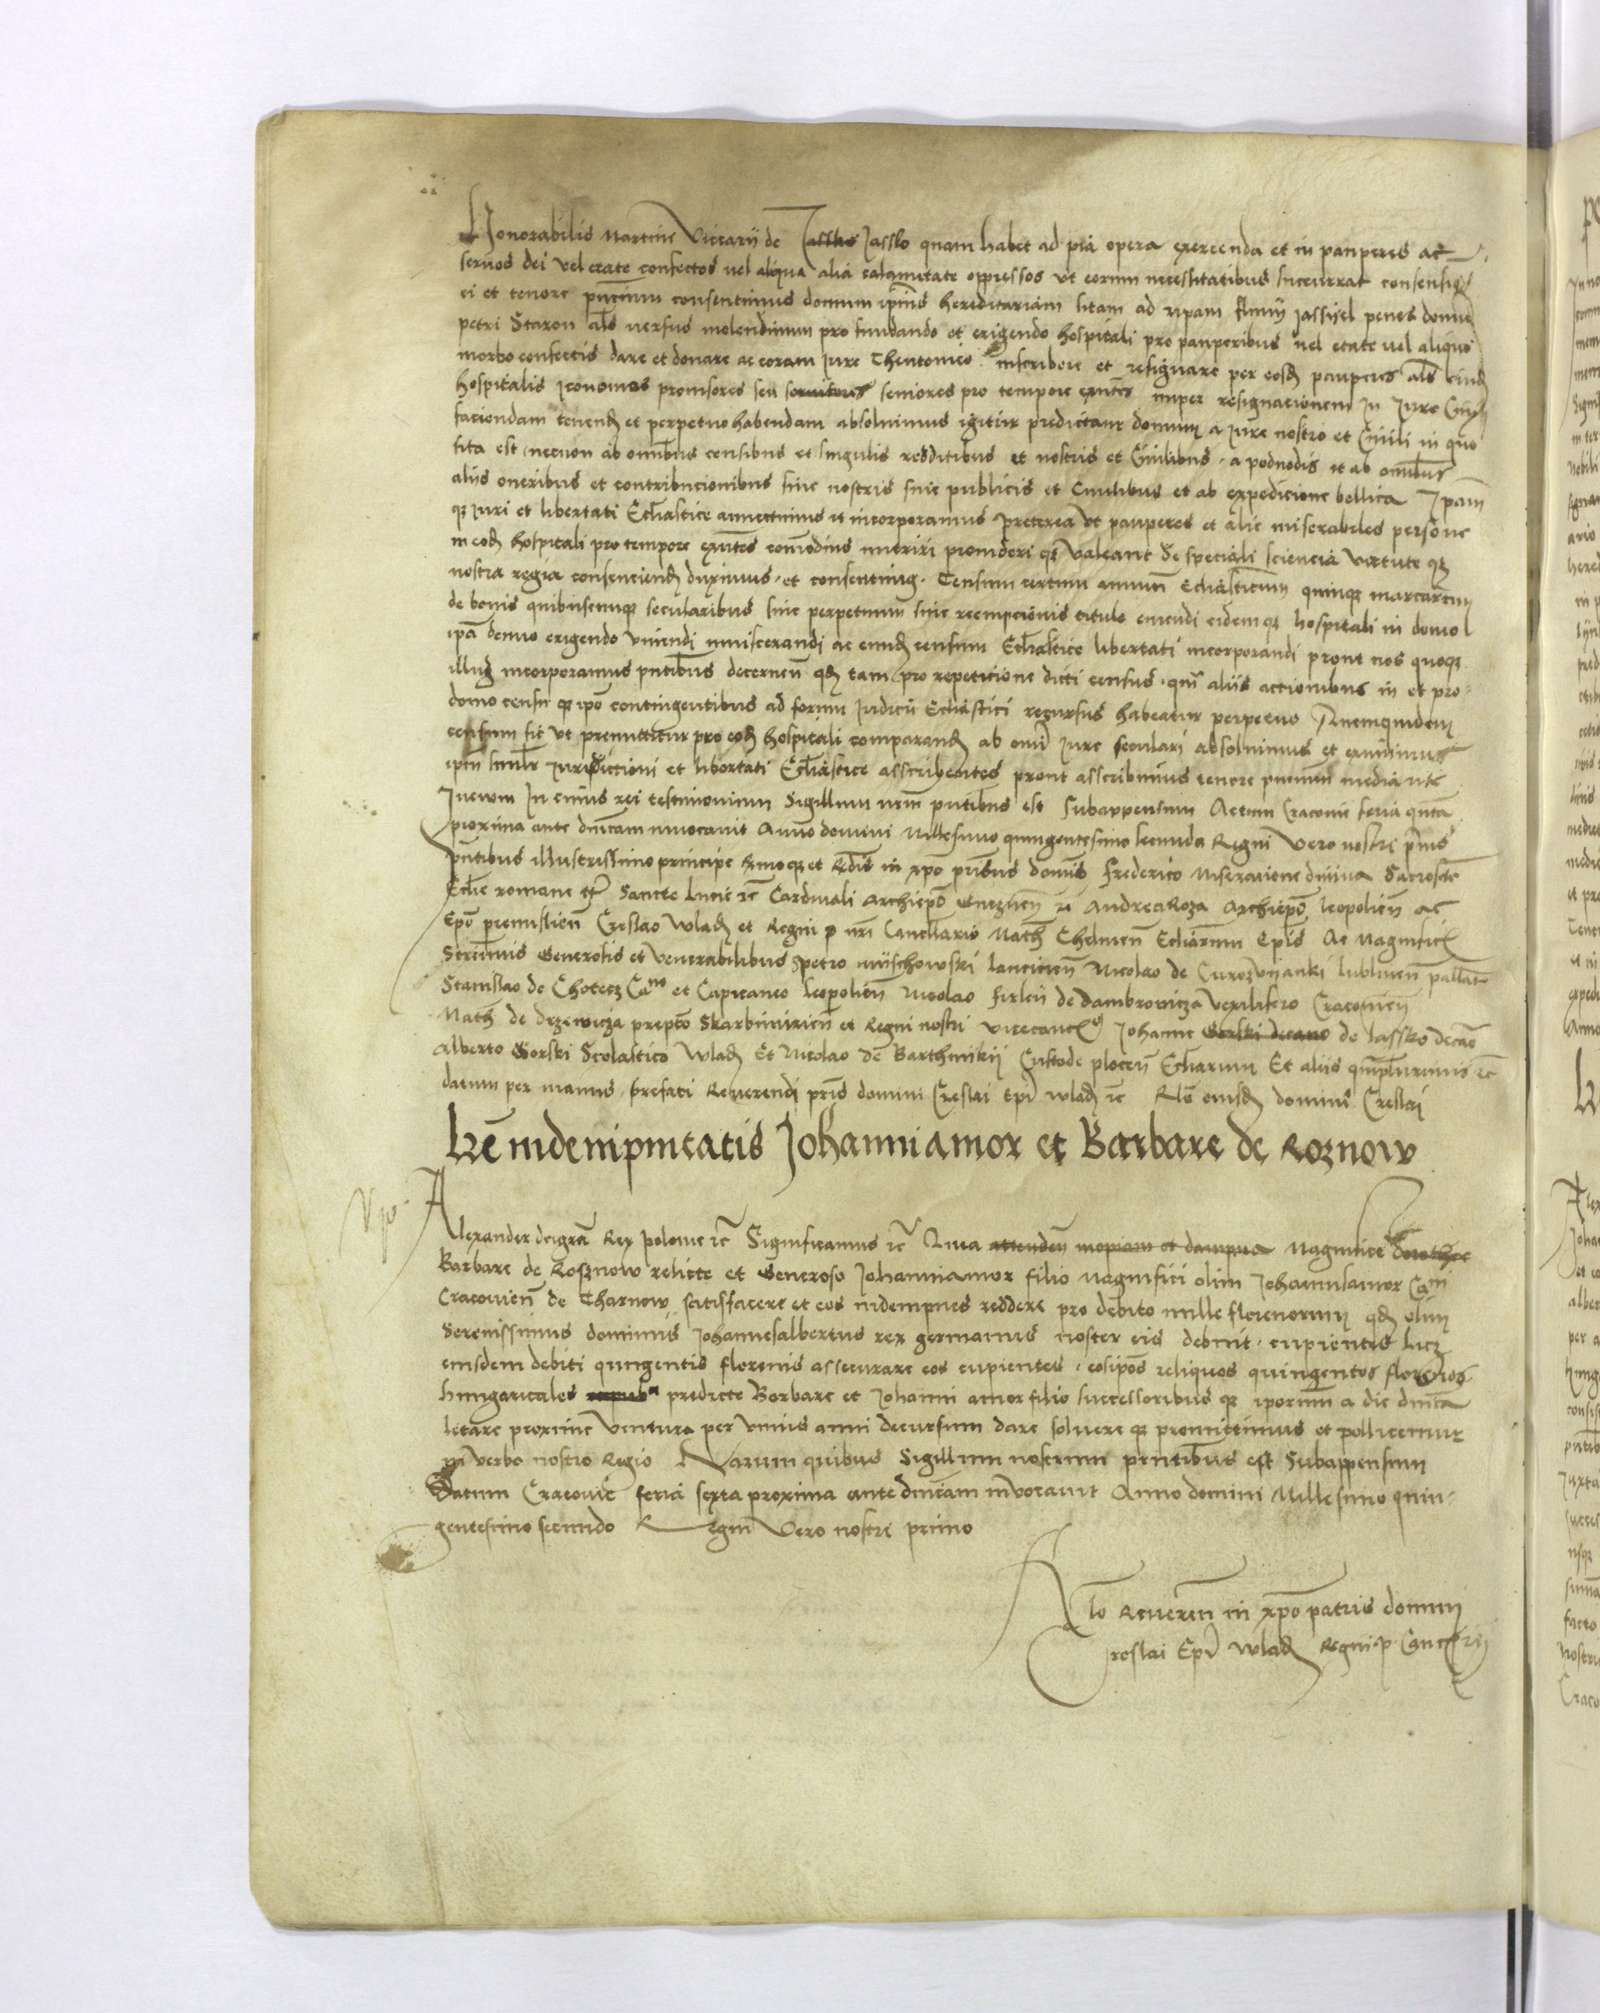 Honorabilis Martini Vicarii de Jasslo Jasslo quam habet ad pia opera exercenda et in pauperes ac
servos dei vel etate confectos vel aliqua alia calamitate oppressos ut eorum necessitatibus succurrat consensim9
ei et tenore pntium consentimus domum ipius hereditariam sitam ad ripam fluvij Jassijel penes domum
petri Staron als versus molendinum pro fundando et erigendo hospitali pro pauperibus vel etate vel aliquo
morbo confectis dare et donare ac coram Jure Theutonico inscribere et resignare per eosd pauperes als eiusd
hospitalis Iconomos provisores seu servitores seniores pro tempore exntes nuper resignationem in Jure Civili
faciendam tenend et perpetuo habendam absolvimus igitur predictam domum a Jure nostro et Civili in quo
sita est necnon ab omnibus censibus et singulis redditibus et nostris et Civilibus a podvodis et ab omnibus
aliis oneribus et contribucionibus sive nostris sive publicis et Civilibus et ab expedicione bellica Ipam
q3 iuri et libertati Ecliastice annectimus et incorporamus Preterea ut pauperes et alie miserabiles persone
in eod hospitali pro tempore exntes comodius nutriri provideri q3 valeant de speciali sciencia virtute q3
nostra regia consenciend duximus et consentim9 Censum certum annuu Ecliasticum quinq3 marcarum
de bonis quibuscumq3 secularibus sive perpetuum sive reempcionis titulo emendi eidem q3 hospitali in domo
ipa denuo erigendo uniendi inviscerandi ac eund censum Ecliastice libertati incorporandi prout nos quoq3
illud incorporamus pntibus decernen qd tam pro repeticione dicti census qm aliis actionibus in et pro
domo censu q3 ipo contingentibus ad forum Iudicii Ecliastici recursus habeatur perpetuo Quemquidem
censum sic ut premittitur pro eod hospitali comparand ab omi Jure seculari absolvimus et eximimus
ipm simlr Jurisdictioni et libertati Ecliastice asscribentes prout asscribimus tenore pntium mediante
In cuius rei testimonium Sigillum nrm pntibus est subappensum Actum Cracovie feria quinta
proxima ante dnicam invocavit Anno domini Millesimo quingentesimo secundo Regni vero nostri primo
pntibus illustrissimo principe Rmoq3 et Rdis in xpo pribus domis Frederico Miseratione divina Sacroscte
Eclie romane tt Sancte Lucie etc Cardinali Archiepo Gneznen et Andrea Roza Archiepo leopolien ac
Epo premislien Creslao Wlad et Regni p nri Cancellario Math Chelmen Ecliarum Epis Ac Magnificis
Strenuis Generosis et Venerabilibus petro mijschowski lancicien Nicolao de Curozwijanki lublinen pallat
Stanislao de Chotecz Cano et Capitaneo leopolien Nicolao firleij de dambrowicza vexilifero Cracovien
Math de drzewicza prepto Skarbimirien et Regni nostri vicecanc Johanne Gorski decano de lassko decao
Alberto Gorski Scolastico Wlad Et Nicolao de Barthnikij Custode plocen Ecliarum Et aliis qmplurimis etc
datum per manus prefati Reverendi pris domini Creslai Epi wlad etc Rlo eiusd domini Creslai
Lre indempnitatis Johanni amor et Barbare de Roznow
Alexander dei gra Rex Polonie etc Significamus etc Quia attenden inopiam et dampna Magnifice dorothee
Barbare de Rosznow relicte et Generoso Johanni amor filio Magnifici olim Johannis amor Cani
Cracovien de Tharnow satisfacere et eos indempnes reddere pro debito mille florenorum qd olim
Serenissimus dominus Johannes albertus rex germanus noster eis debuit cupientes licz
eiusdem debiti quingentis florenis assecurare eos cupientes eosipos reliquos quingentos florenos
hungaricales predicte Barbare et Johanni amor filio successoribus q3 iporum a die dnica
letare proxime ventura per unius anni decursum dare solvere q3 promittimus et pollicemur
in verbo nostro Regio Harum quibus Sigillum nostrum pntibus est Subappensum
Datum Cracovie feria sexta proxima ante dnicam invocavit Anno domini Millesimo quin
gentesimo secundo Regni vero nostri primo
Rlo Reveren in xpo patris domini
Creslai Epi wlad Regni p Cancrij